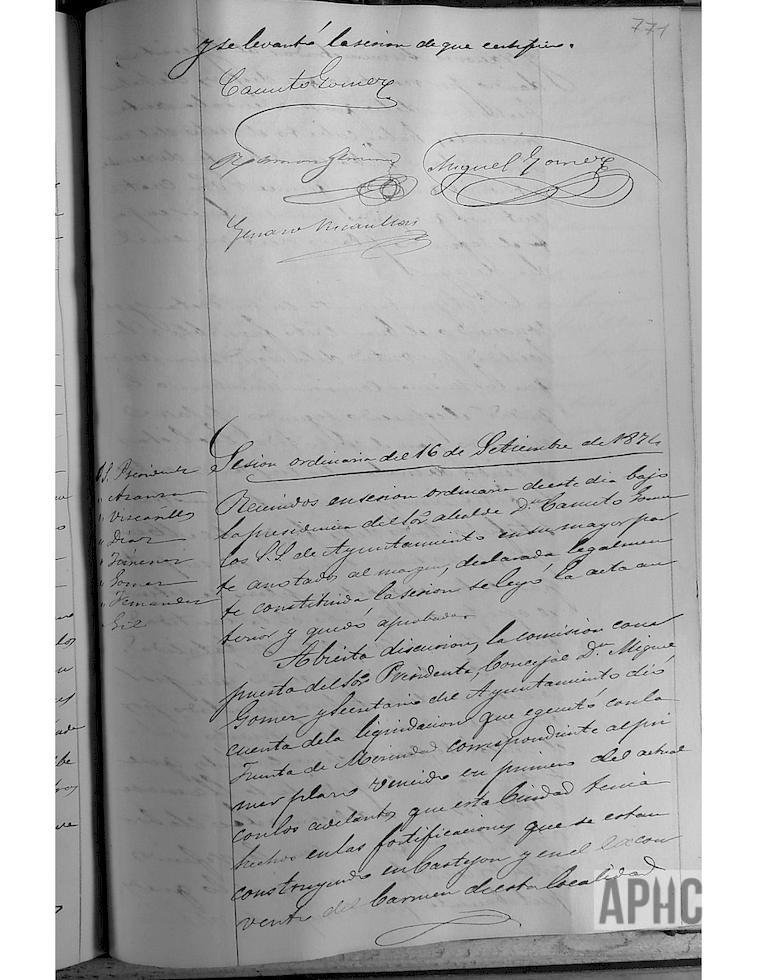 771
y se levantó la sesion de que certifico.
Canuto Gomez
Ramon Gimenez
Miguel Gomez
Genaro
Sesion ordinaria del 16 de Setiembre de 1874
S. S. Presidente
" Azanza
" Viscarret
" Diaz
" Ximenez
" Gomez
" Fernandez
" Gil
Reunidos en sesion ordinaria de este dia bajo
la presidencia del Sor. alcalde Dn. Canuto Gomez
los S. S. de Ayuntamiento en su mayor par
te anotados al margen, declarada legalmen
te constituida la sesion se leyó la acta an
terior y quedó aprobada.
Abierta discusion, la comision com
puesta del Sor. Presidente, Concejal Dn. Miguel
Gomez y Secretario del Ayuntamiento dió
cuenta de la liquidacion que egecutó con la
Junta de Merindad correspondiente al pri
mer plazo vencido en primero del actual
con los adelantos que esta Ciudad tenia
hechos en las fortificaciones que se estan
construyendo en Castejon y en el ex con
vento del Carmen de esta localidad
APHC